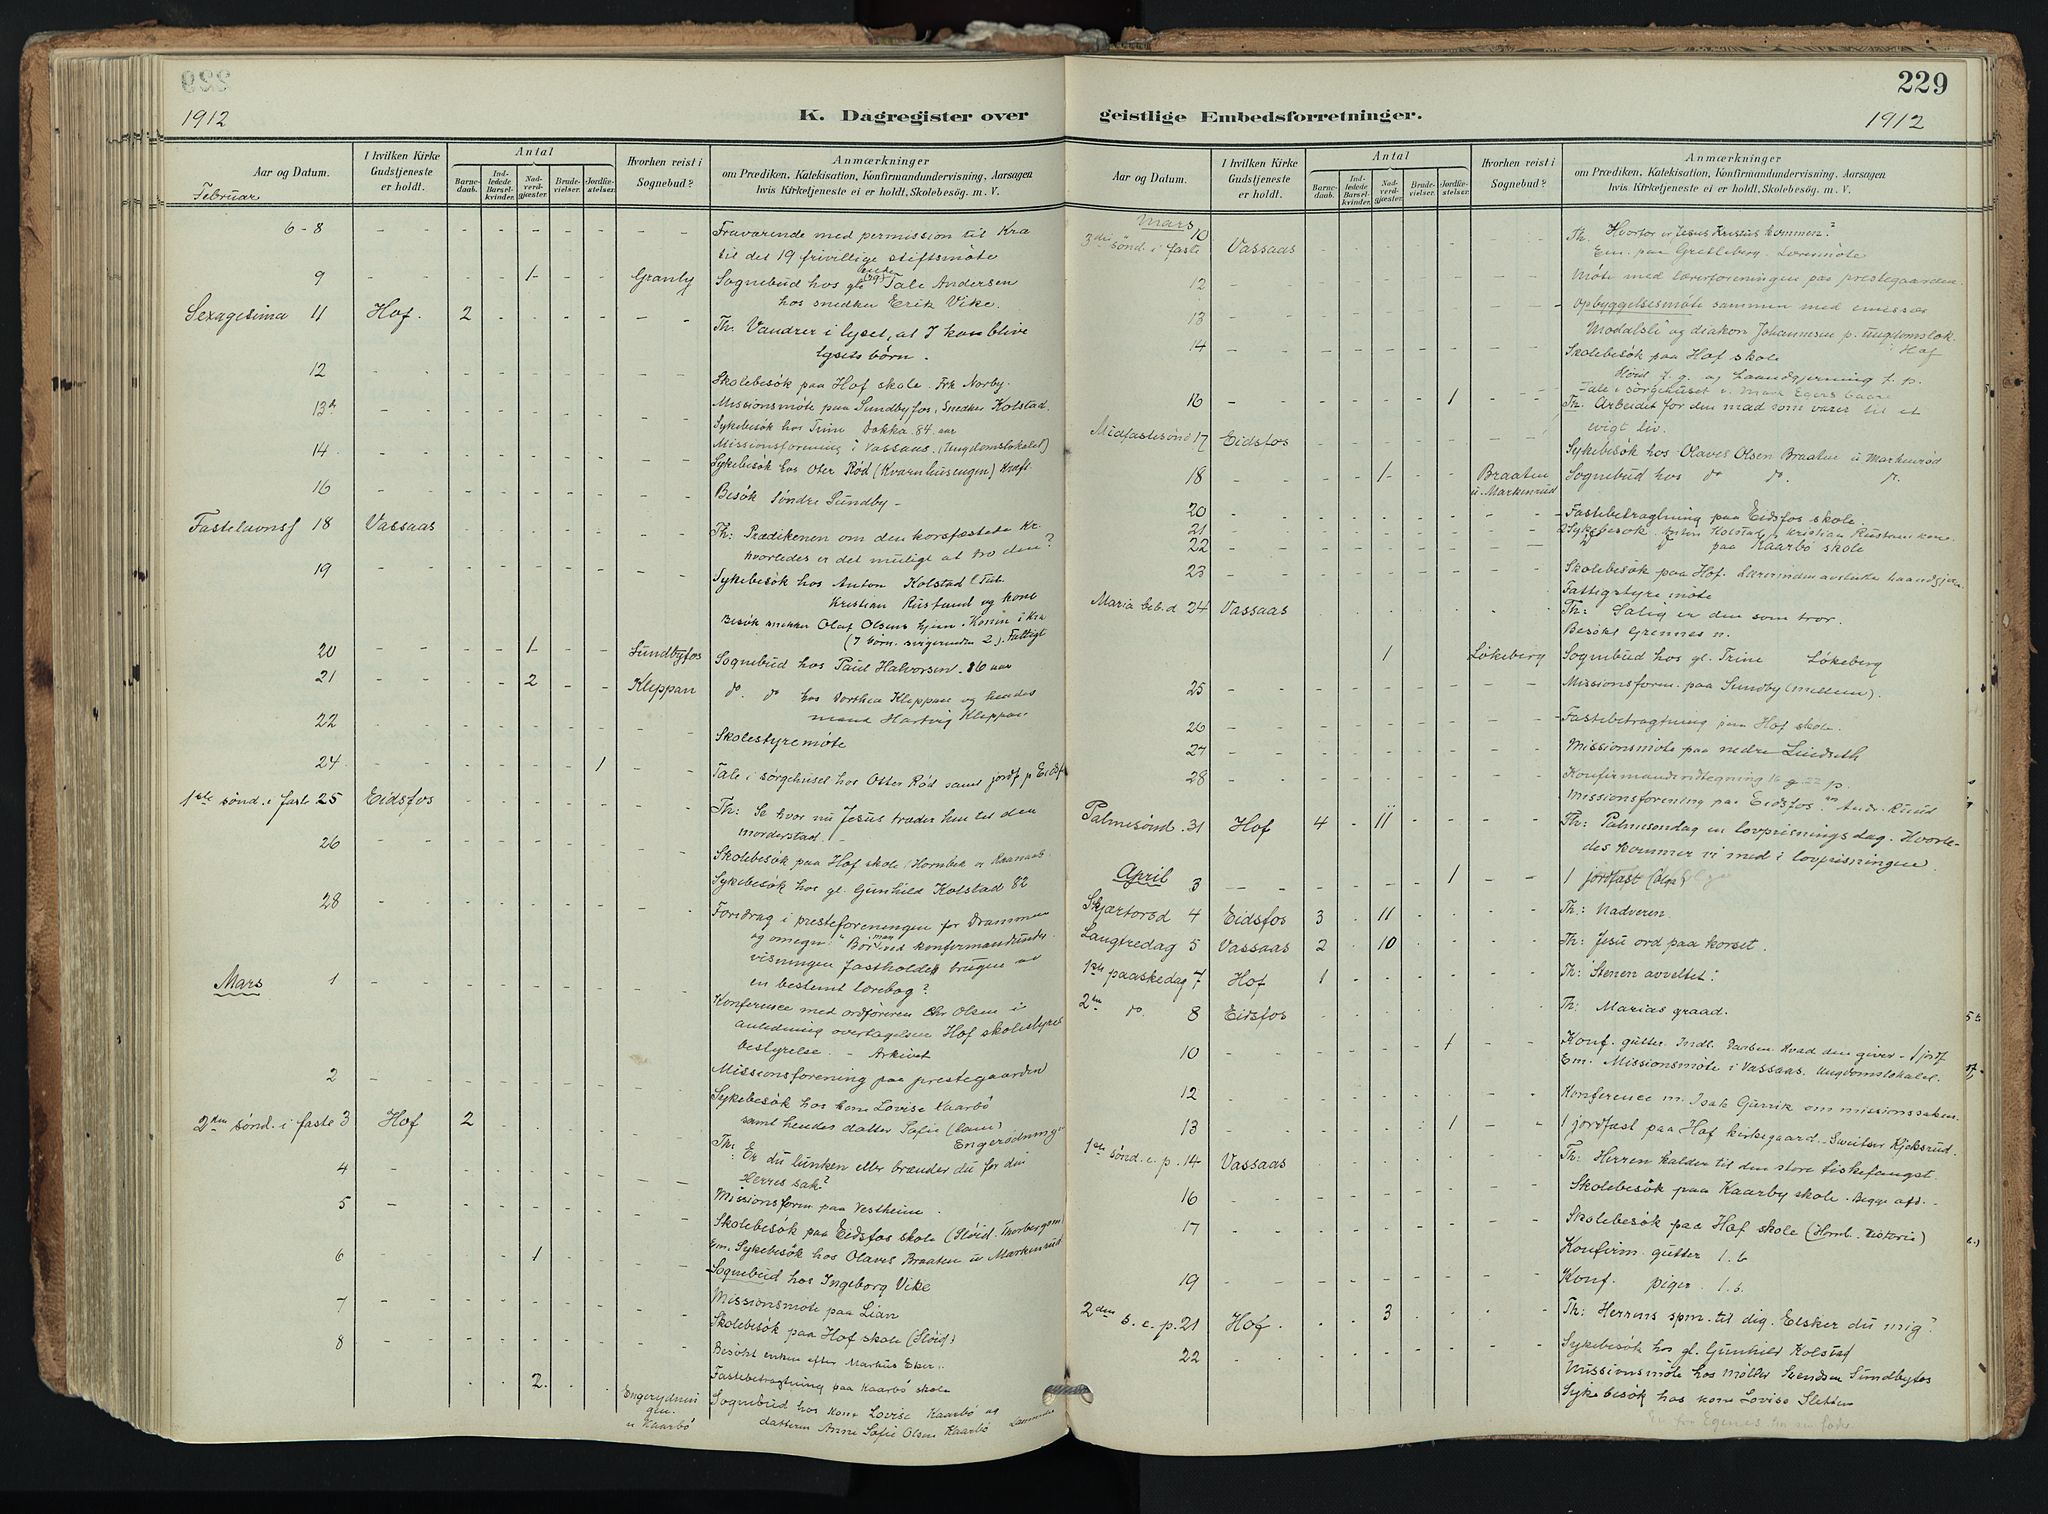 229
1912
K. Dagregister over
Aar og Datum.
I hvilken Kirke Gudstjeneste er holdt.
Antal
Barnedaab.
Indledede Barselkvinder.
Nadverdgjæster.
Brudevielser.
Jordfæstelser.
Hvorhen reist i Sognebud?
Anmærkninger
om Prædiken, Katekisation, Konfirmandundervisning, Aarsagen
hvis Kirketjeneste ei er holdt, Skolebesøg. m. V.
Februar
6-8 Fraværende med permission til Kra
til det 19 frivillige stiftsmöte
9 1 Granly Sognebud hos gl. Tale Andersen
hos snedker Erik Vike.
Sexagesima 11 Hof. 2 Th. Vandrer i lyset, at I kan blive
lysets börn.
12 Skolebesök paa Hof skole. Frk Norby.
13de Missionsmöte paa Sundbyfos. Snedker Kolstad.
Sykebesök hos Trine Dokka. 84 aar
14 Missionsforening i Vassaas. (Ungdomslokalet)
Sykebesök hos Oter Röd (Kvarnhusengen) Kræft
16 Besök Söndre Sundby -
Fastelavnss 18 Vassaas Th: Prædikenen om den korsfæstede Kr.
hvorledes er det muligt at tro den?
19 Sykebesök hos Anton Kolstad
Kristian Rustand og kone
Besök snekker Olaf Olsens hjem. Konen i Kra
(7 börn. svigermoder 2). Fattigt
20 1 Sundbyfos Sognebud hos Paul Halvorsen. 86 aar
21 2 Kleppan do. do hos Dorthea Kleppan og hendes
mand Hartvig Kleppan
22 Skolestyremöte
24 1 Tale i sörgehuset hos Otter Röd samt jordf p Eidsf
1ste sönd. i faste 25 Eidsfos Th: Se hvor nu Jesus træder hen til den
morderstad.
26 Skolebesök paa Hof skole (Hornbek & Raanaas
Sykebesök hos gl. Gunhild Kolstad 82
28 Foredrag i presteforeningen for Drammen
og omegn: "Bör man ved konfirmandunder-
visningen fastholde brugen av
en bestemt lærebog?
Mars 1 Konference med ordföreren Chr Olsen i
anledning overtagelsen Hof skolestyres
bestyrelse. - Arkivet
2 Missionsforening paa prestegaarden
Sykebesök hos kone Lovise Kaarbö
samt hendes datter Sofie (lam) Engerödningen
2den sönd. i faste 3 Hof 2 Th: Er du lunken eller brænder du for din
Herres sak?
4 Missionsforen paa Vestheim.
5 Skolebesök paa Eidsfos skole (Slöid. Thorbergsen)
Em. Sykebesök hos Olaves Braaten u Markenrud
6 1 Sognebud hos Ingeborg Vike
7 Missionsmöte paa Lian
Skolebesök paa Hof skole (Slöid)
8 Besökt enken efter Markus Eker.
Fastebetragtning paa Kaarbö skole
2. Engerydningen u Kaarbö Sognebud hos kone Lovise Kaarbö og
datteren Anne Sofie Olsen Kaarbö
229
1912
geistlige Embedsforretninger.
Aar og Datum.
I hvilken Kirke Gudstjeneste er holdt.
Antal
Barnedaab.
Indledede Barselkvinder.
Nadverdgjæster.
Brudevielser.
Jordfæstelser.
Hvorhen reist i Sognebud?
Anmærkninger
om Prædiken, Katekisation, Konfirmandundervisning, Aarsagen
hvis Kirketjeneste ei er holdt, Skolebesøg. m. V.
Mars
3die sönd. i faste 10 Vassaas Th. Hvorfor er Jesus Kristus kommen?
Em. paa Gretteberg. Læremöte
12 Möte med lærerforeningen paa prestegaarden.
13 Opbyggelsesmöte sammen med emissær
Modalsli og diakon Johannesen p. ungdomslok.
i Hof
14 Skolebesök paa Hof skole
Hörd f. g. og haandgjerning f. p.
16 1 Tale i sörgehuset v. Mark Egers baare
Midfastesönd 17 Eidsfos Th. Arbeidet for den mad som varer til et
evigt liv.
Sykebesök hos Olaves Olsen Braaten u Markenröd
18 1 Braaten u. Markenrud Sognebud hos do do.
20 Fastebetragtning paa Eidsfos skole.
21 2 Sykebesök. Anton Kolstad, Kristian Rustans kone
22 paa Kaarbö skole
23 Skolebesök paa Hof. Lærerinden avsluttet haandgjern.
Fattigstyremöte
Maria beb.d 24 Vassaas Th: Salig er den som tror.
Besökt Grennes n.
1 Lökeberg Sognebud hos gl. Trine Lökeberg
25 Missionsforen. paa Sundby (mellem).
26 Fastebetragtning paa Hof skole.
27 Missionsmöte paa nedre Lindseth
28 Konfirmandindtegning 16 g 22 p.
Missionsforening paa Eidsfos. Andr. Ruud
Palmesönd. 31 Hof 4 11 Th: Palmesöndag en lovprisningsdag. Hvorle-
des kommer vi med i lovprisningen
April 3 1 1 jordfæst
Skjærtorsd 4 Eidsfos 3 11 Th: Nadveren.
Langfredag 5 Vassaas 2 10 Th: Jesu ord paa korset.
1ste paaskedag 7 Hof 1 Th: Stenen avveltet!
2den do. 8 Eidsfos Th: Marias graad.
10 1 Konf. gutter. Indl. Daaben. Hvad den giver - 1 jordf
Em. Missionsmöte i Vassaas. Ungdomslokalet.
12 Konference m. Isak Gurrik om missionssaken.
13 1 1 jordfæst paa Hof kirkegaard. - Sveitser Kjeksrud.
1ste sönd. e. p. 14 Vassaas Th: Herren kalder til den store fiskefangst.
16 Skolebesök paa Kaarby skole. Begge afd.
17 Skolebesök paa Hof skole (Hornb. Historie)
Konfirm. gutter 1. b
19 Konf. piger. 1. b.
2den s. e. p. 21 Hof. 3 Th: Herrens spm. til dig. Elsker du mig?
22 Sykebesök hos gl. Gunhild Kolstad
Missionsmöte hos möller Svendsen Sundbyfos
Sykebesök hos kone Lovise Sletsen